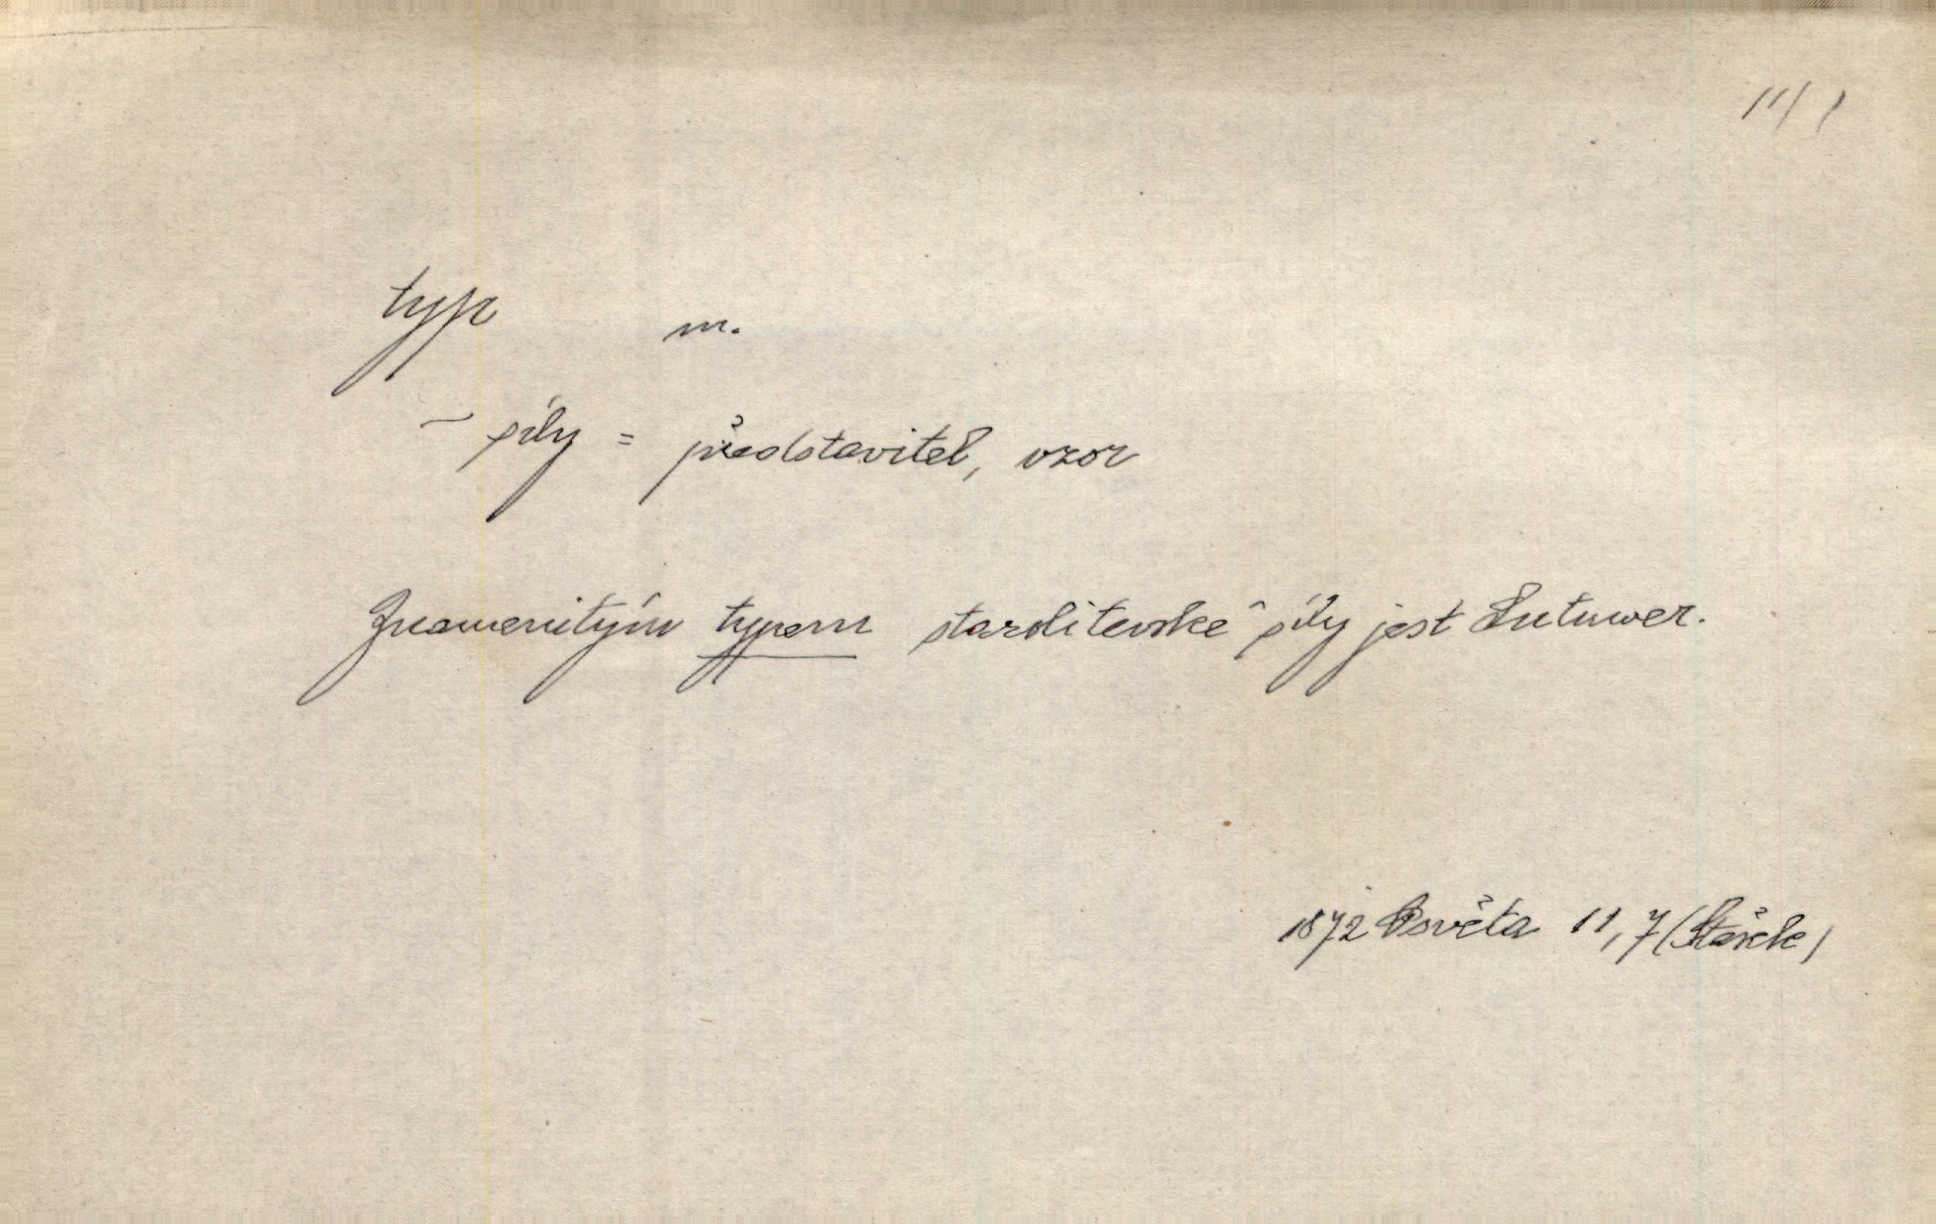 11/1
typ m.
~ síly = představitel, vzor
Znamenitým typem starolitevské síly jest Lutuwer.
1872 Osvěta 11, 7 (Stašek)